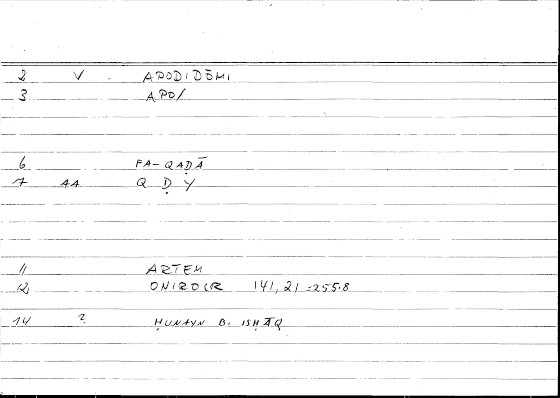 2 V . APODIDŌMI
3 APO/
6 FA-QAḌĀ
7 AA Q Ḍ Y
11 ARTEM
12 ONIROCR 141,21 =255.8
14 ? ḤUNAYN B. ISḤĀQ